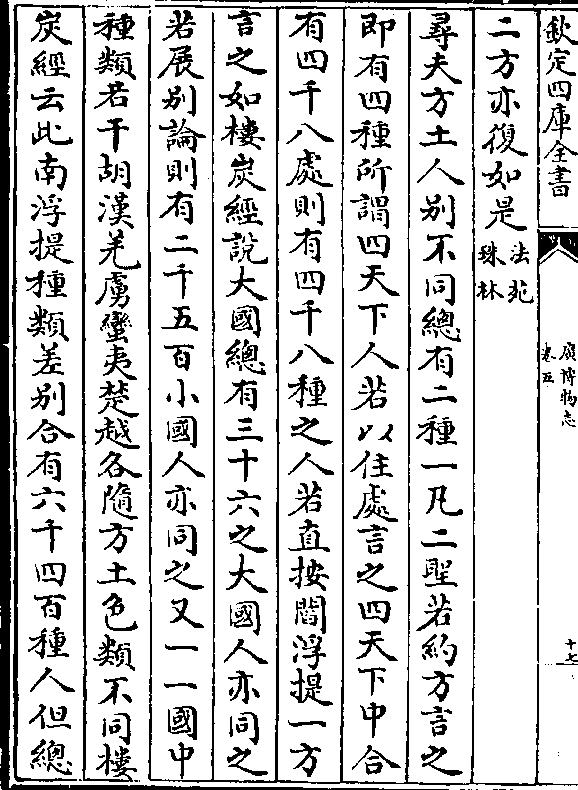 欽定四庫全書
廣博物志
卷五
十七
二方亦復如是法苑
珠林
尋夫方土人别不同總有二種一凡二聖若約方言之
即有四種所謂四天下人若以住處言之四天下中合
有四千八處則有四千八種之人若直按閻浮提一方
言之如樓炭經說大國總有三十六之大國人亦同之
若展别論則有二千五百小國人亦同之又一一國中
種類若干胡漢羌虜蠻夷楚越各隨方土色類不同樓
炭經云此南浮提種類差别合有六千四百種人但總